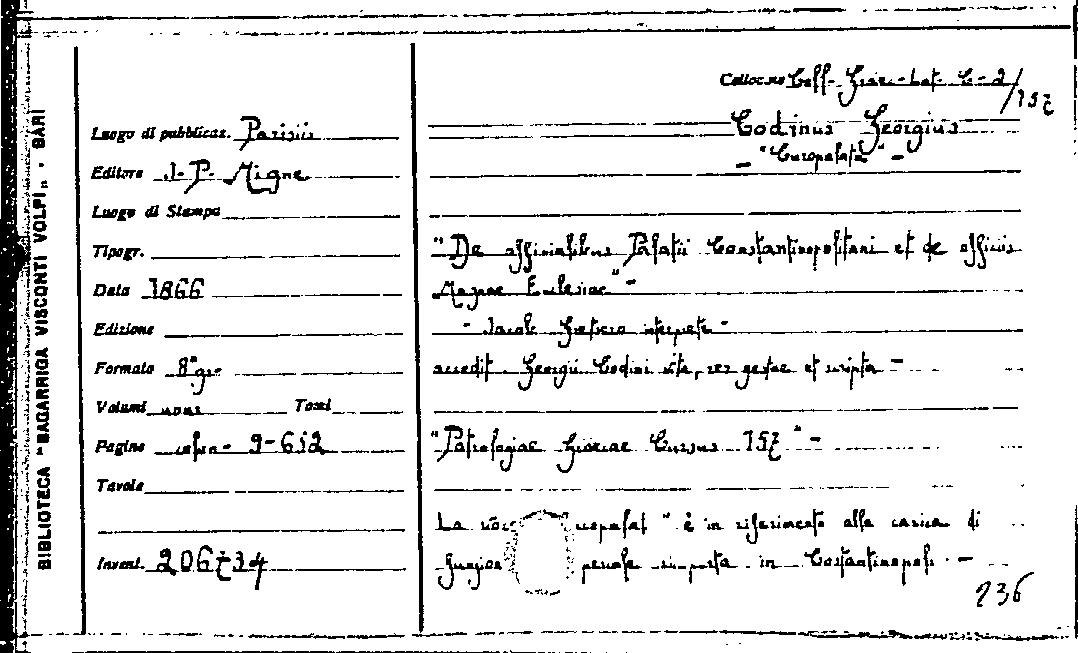 BIBLIOTECA "SAGARRIGA VISCONTI VOLPI" - BARI
Luogo di pubblicaz. Parisiis
Editore J.-P. Migne
Luogo di Stampa
Tipogr.
Data 1866
Edizione
Formato 8° gr.
Volumi Tomi
Pagine 9-652
Tavole
Invent. 206734
Collocaz. Coll. Graec.-Lat. C-2/157
Codinus Georgius
- "Curopalata" -
"De officialibus Palatii Constantinopolitani et de officiis
Magnae Ecclesiae" -
- Jacobo Gretsero interprete -
accedit Georgii Codini vita, res gestae et scripta -
"Patrologiae Graecae Cursus 157" -
La voce "è in riferimento alla carica di
in Costantinopoli -
236